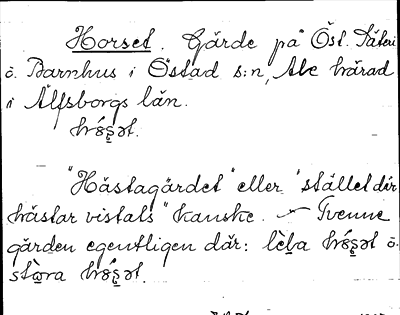 Horset. Gärde på Öst. Säteri
o. Barnhus i Östad s:n, Ale härad
i Älfsborgs län.
"Hästagärdet" eller "stället där
hästar vistats" kanske. — Tvenne
gärden egentligen där: